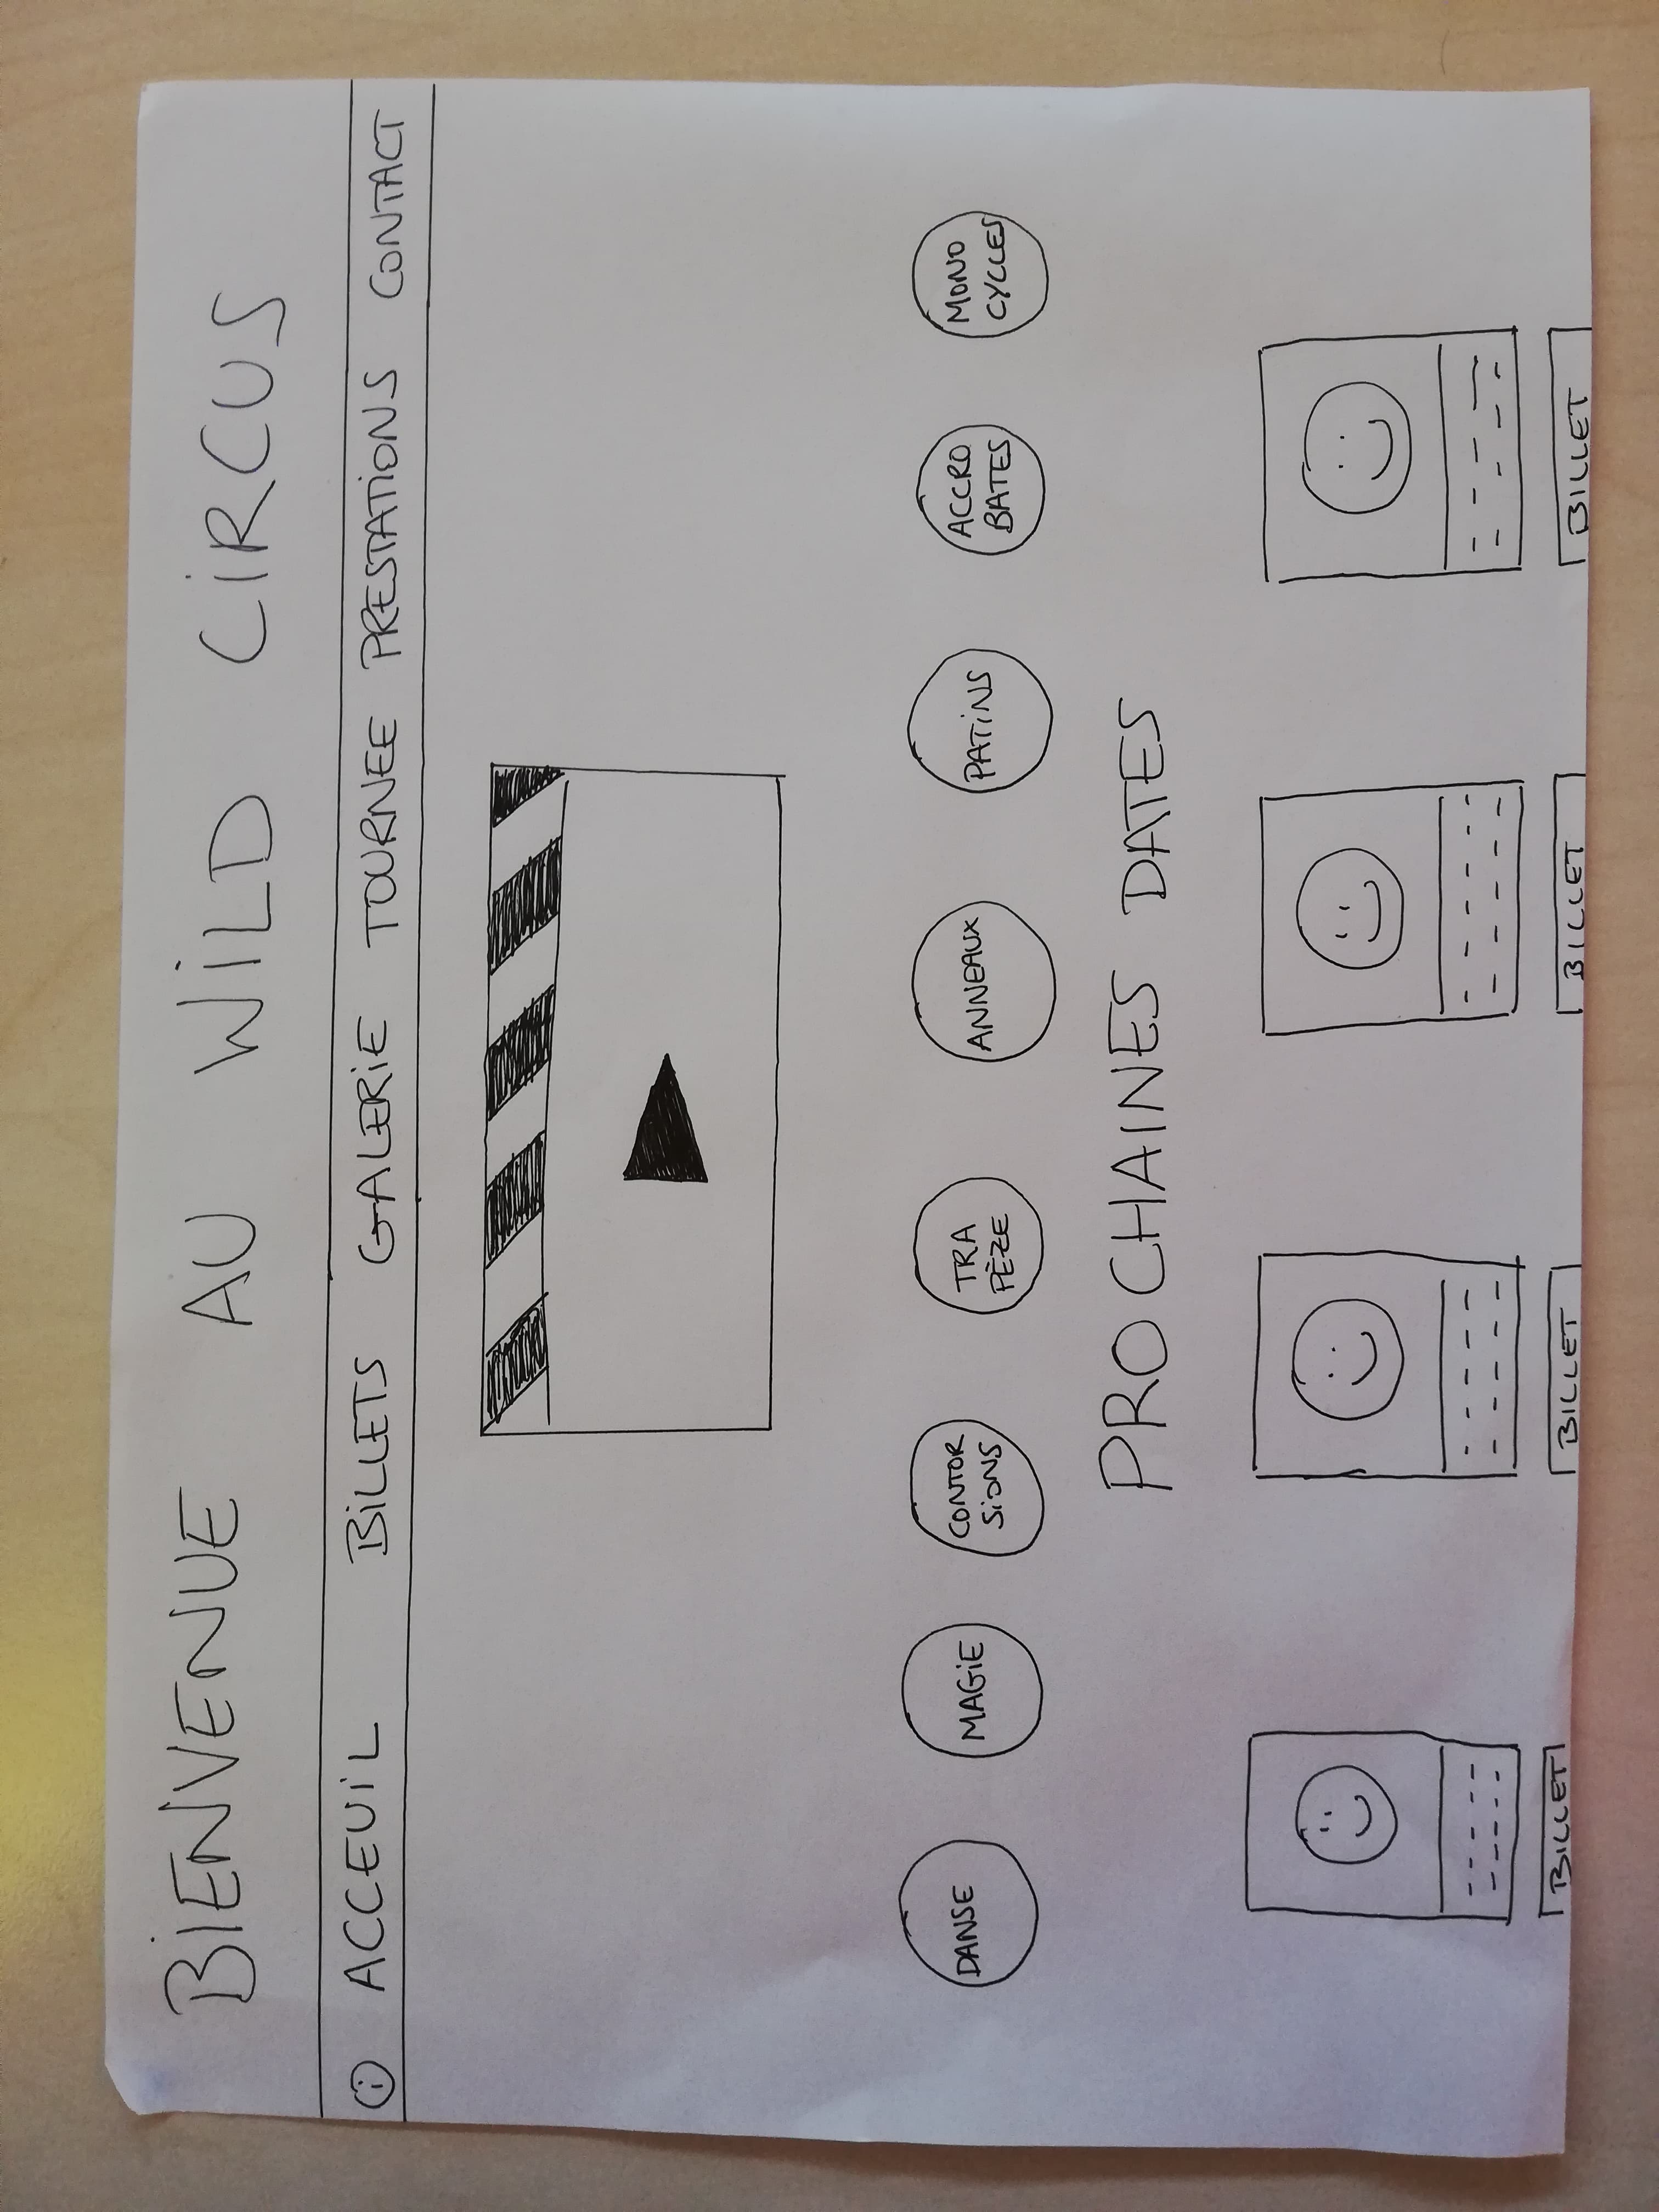 BIENVENUE AU WILD CIRCUS
ACCEUIL BILLETS GALERIE TOURNEE PRESTATIONS CONTACT
DANSE
MAGIE
CONTOR
SIONS
TRA
PÈZE
ANNEAUX
PATINS
ACCRO
BATES
MONO
CYCLES
PROCHAINES DATES
BILLET
BILLET
BILLET
BILLET